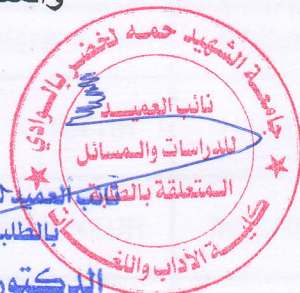 جامعة الشهيد حمه لخضر بالوادي
نائب العميد
للدراسات والمسائل
المتعلقة بالطلبة
كلية الآداب واللغات
نائب العميد
بالطلبة
الدكتور